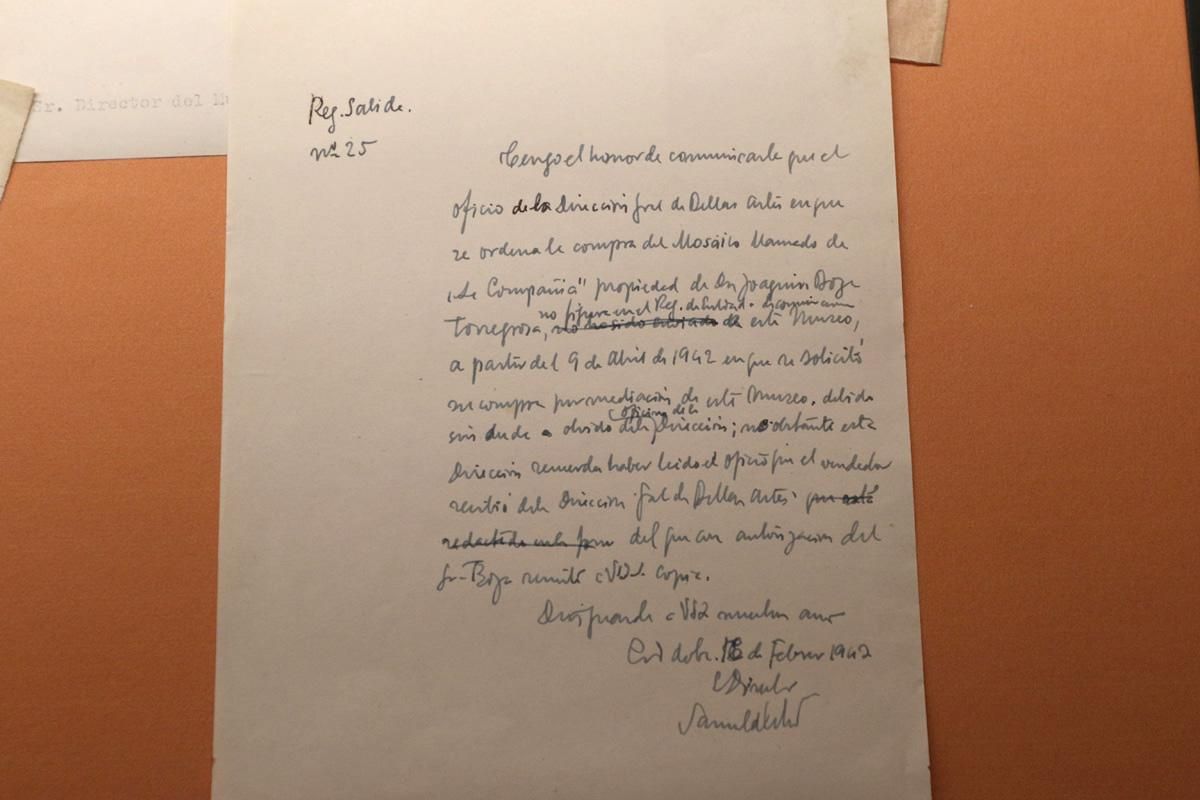 Sr. Director del Mu
Reg. Salida.
nº 25
Tengo el honor de comunicarle que el
oficio de la Dirección Gral de Bellas Artes en que
se ordena la compra del Mosaico llamado de
"La Compañia" propiedad de Dn Joaquin Boza
no figura en el Reg. de Entrad.
Torregrosa, no ha sido enviado de este Museo,
a partir del 9 de Abril de 1942 en que se solicitó
su compra por mediación de este Museo. debido
oficina de la
sin duda a olvido de la Dirección; no obstante esta
Dirección recuerda haber leido el oficio que el vendedor
recibió de la Dirección Gral de Bellas Artes que está
redactado en la del que con autorización del
Sr. Boza remito a Vd. copia.
Dios guarde a Vd muchos años
Córdoba. 16 de Febrero 1942
El Director
Samuel de los